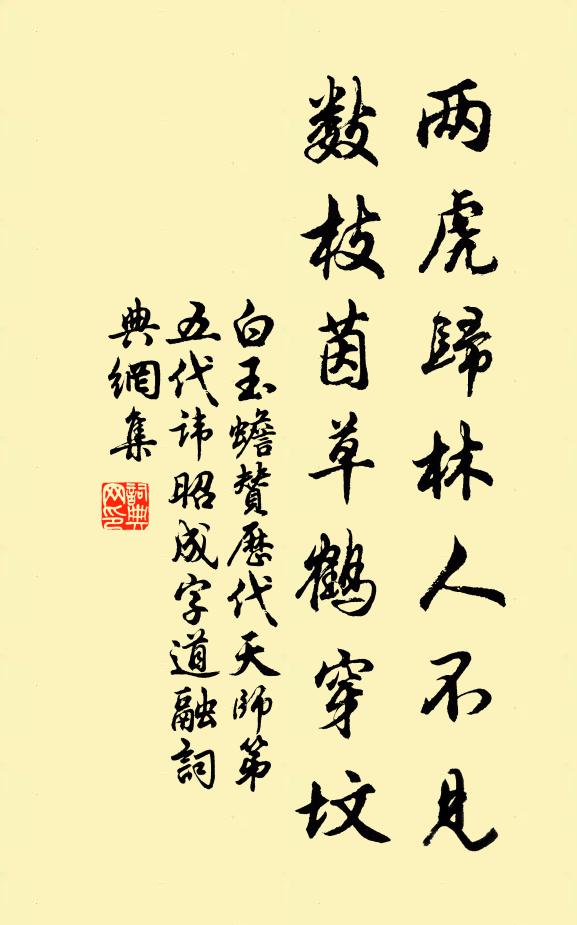 两虎歸林人不見
数枝茵草鶴穿墳
白玉蟾賛歷代天師第
五代諱昭成字道融詞
典網集
詞典网印